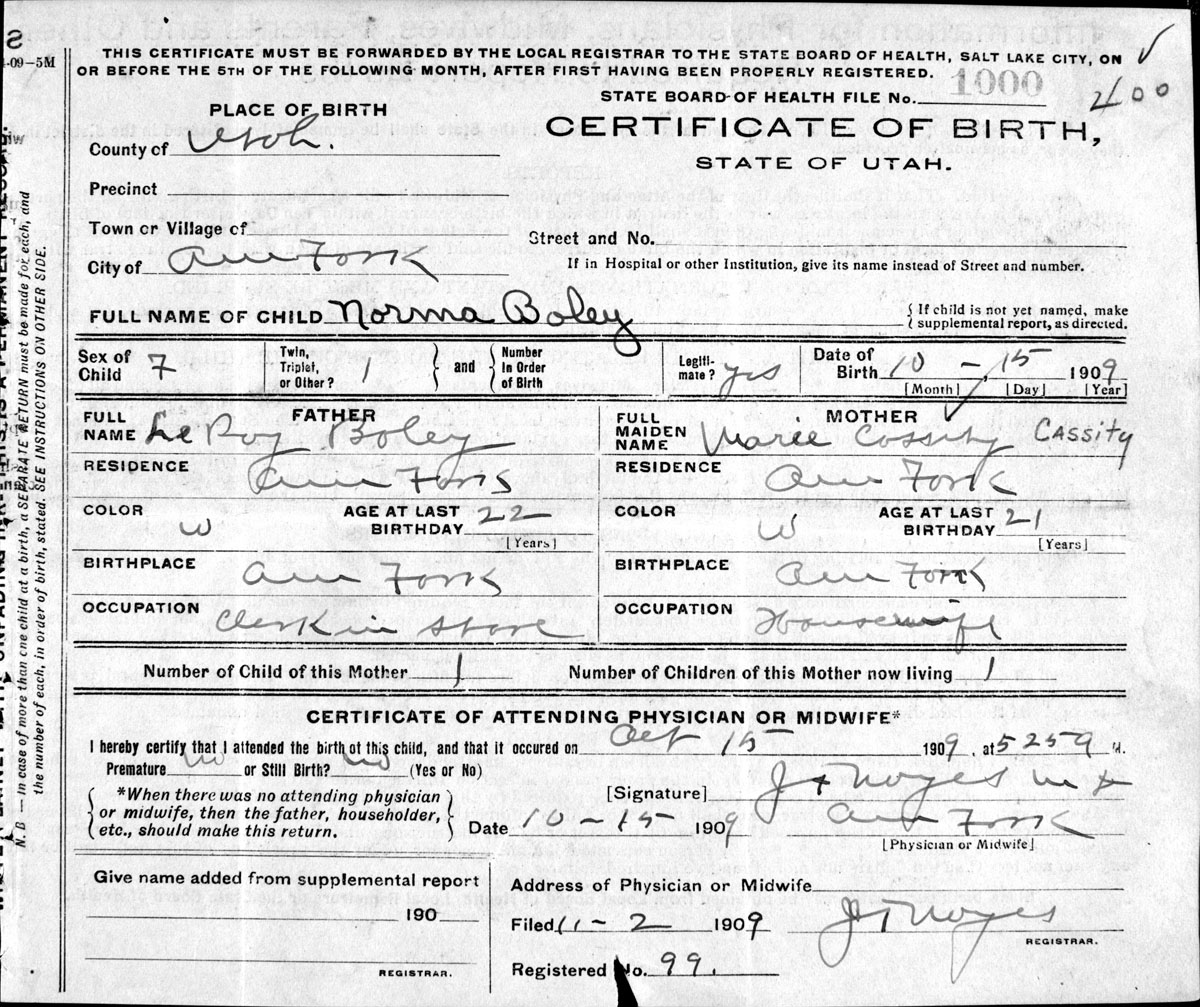 THIS CERTIFICATE MUST BE FORWARDED BY THE LOCAL REGISTRAR TO THE STATE BOARD OF HEALTH, SALT LAKE CITY, ON
OR BEFORE THE 5TH OF THE FOLLOWING MONTH, AFTER FIRST HAVING BEEN PROPERLY REGISTERED.
-09-5M
STATE BOARD OF HEALTH FILE No. 1000
400
PLACE OF BIRTH
CERTIFICATE OF BIRTH,
STATE OF UTAH.
County of Utah.
Precinct
Town or Village of
Street and No.
City of Am Fork
If in Hospital or other Institution, give its name instead of Street and number.
FULL NAME OF CHILD Norma Boley
{ If child is not yet named, make
supplemental report, as directed.
Sex of Child F
Twin, Triplet, or Other? 1
and
Number in Order of Birth
Legitimate? yes
Date of Birth 10 - 15 1909
[Month] [Day] [Year]
FATHER
FULL NAME Le Roy Boley
MOTHER
FULL MAIDEN NAME Marie Cossity CASSITY
RESIDENCE Am Fork
RESIDENCE Am Fork
COLOR W AGE AT LAST BIRTHDAY 22 [Years]
COLOR W AGE AT LAST BIRTHDAY 21 [Years]
BIRTHPLACE Am Fork
BIRTHPLACE Am Fork
OCCUPATION Clerk in store
OCCUPATION Housewife
Number of Child of this Mother 1
Number of Children of this Mother now living 1
CERTIFICATE OF ATTENDING PHYSICIAN OR MIDWIFE*
I hereby certify that I attended the birth of this child, and that it occured on Oct 15 1909, at 525 M.
Premature No or Still Birth? No (Yes or No)
*When there was no attending physician
or midwife, then the father, householder,
etc., should make this return.
[Signature] J F Noyes M D
Date 10-15 1909
Am Fork
[Physician or Midwife]
Give name added from supplemental report
190
REGISTRAR.
Address of Physician or Midwife
Filed 11-2 1909
J F Noyes
REGISTRAR.
Registered No. 99.
N. B — In case of more than one child at a birth, a SEPARATE RETURN must be made for each, and
the number of each, in order of birth, stated. SEE INSTRUCTIONS ON OTHER SIDE.